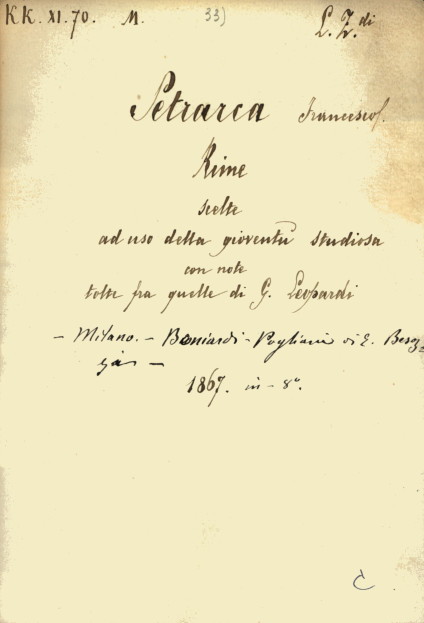 KK. XI. 70. M. 33) L. Z. di
Petrarca Francesco.
Rime
scelte
ad uso della gioventù studiosa
con note
tolte fra quelle di G. Leopardi
- Milano. - Boniardi - Pogliani di E. Besoz=
zi -
1867. in - 8°.
C